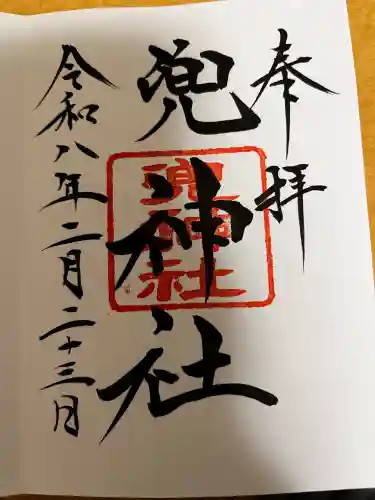 奉拝
兜神社
兜神社
令和八年二月二十三日